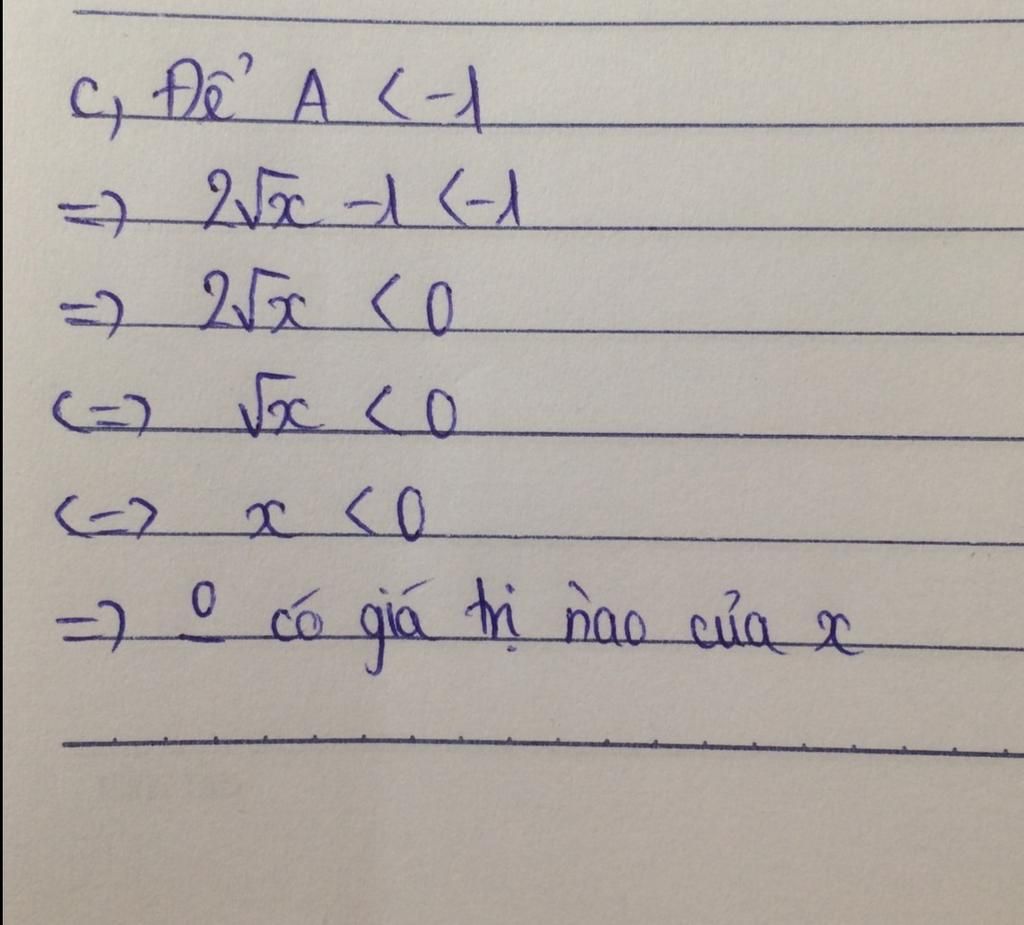 c, Để A < -1
=> 2√x - 1 < -1
=> 2√x < 0
<=> √x < 0
<=> x < 0
=> 0 có giá trị nào của x